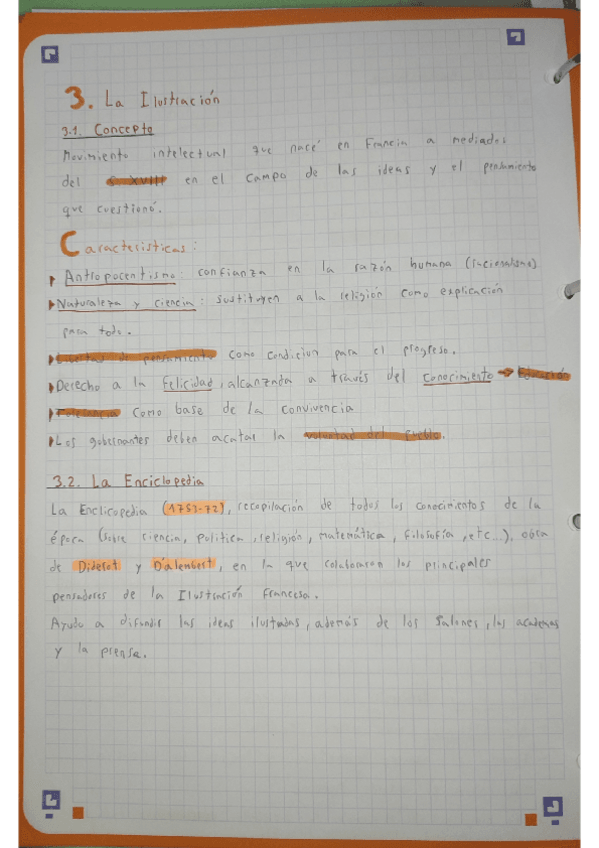 3. La Ilustración
3.1. Concepto
Movimiento intelectual que nace en Francia a mediados
del S XVIII en el campo de las ideas y el pensamiento
que cuestionó.
Características:
Antropocentismo: confianza en la razón humana (racionalismo)
Naturaleza y ciencia: sustituyen a la religión como explicación
para todo.
Libertad de pensamiento como condicion para el progreso.
Derecho a la felicidad, alcanzada a través del conocimiento → Educación
Tolerancia como base de la convivencia
Los gobernantes deben acatar la voluntad del pueblo.
3.2. La Enciclopedia
La Enclicopedia (1753-72), recopilación de todos los conocimientos de la
época (sobre ciencia, politica, religión, matemática, filosofía, etc...), obra
de Diderot y D'alembert, en la que colaboraron los principales
pensadores de la Ilustración francesa.
Ayudo a difundir las ideas ilustradas, además de los Salones, las academias
y la prensa.